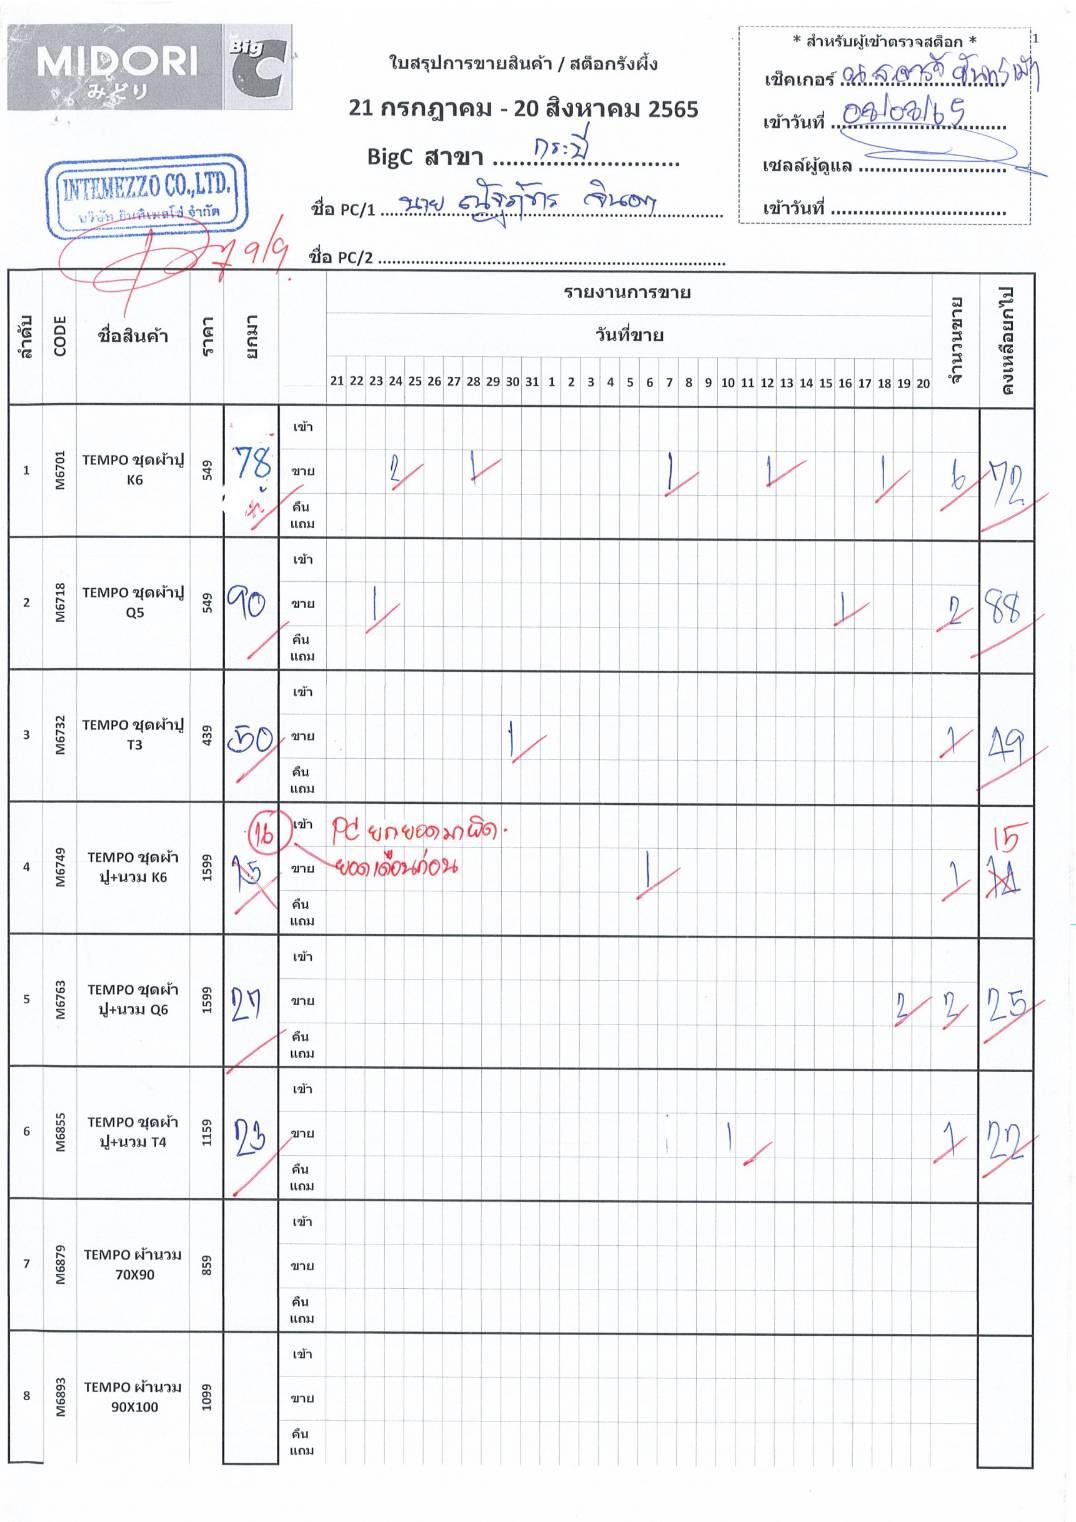 MIDORI
みどり
Big C
ใบสรุปการขายสินค้า / สต็อกรังผึ้ง
21 กรกฎาคม - 20 สิงหาคม 2565
BigC สาขา กระบี่
ชื่อ PC/1 นาย
ชื่อ PC/2
1
* สำหรับผู้เข้าตรวจสต็อก *
เช็คเกอร์ น.ส.
เข้าวันที่
เซลล์ผู้ดูแล
เข้าวันที่
INTEMEZZO CO.,LTD.
บริษัท อินทิเมสโซ่ จำกัด
9/9
ลำดับ CODE ชื่อสินค้า ราคา ยกมา รายงานการขาย จำนวนขาย คงเหลือยกไป
วันที่ขาย
21 22 23 24 25 26 27 28 29 30 31 1 2 3 4 5 6 7 8 9 10 11 12 13 14 15 16 17 18 19 20
เข้า
1 M6701 TEMPO ชุดผ้าปู K6 549 78 ขาย 2 1 1 1 1 6 72
คืน
แถม
เข้า
2 M6718 TEMPO ชุดผ้าปู Q5 549 90 ขาย 1 1 2 88
คืน
แถม
เข้า
3 M6732 TEMPO ชุดผ้าปู T3 439 50 ขาย 1 1 49
คืน
แถม
16 เข้า PC ยกยอดมาผิด. 15
4 M6749 TEMPO ชุดผ้าปู+นวม K6 1599 15 ขาย ยอดเดือนก่อน 1 1 14
คืน
แถม
เข้า
5 M6763 TEMPO ชุดผ้าปู+นวม Q6 1599 27 ขาย 2 2 25
คืน
แถม
เข้า
6 M6855 TEMPO ชุดผ้าปู+นวม T4 1159 23 ขาย 1 1 22
คืน
แถม
เข้า
7 M6879 TEMPO ผ้านวม 70X90 859 ขาย
คืน
แถม
เข้า
8 M6893 TEMPO ผ้านวม 90X100 1099 ขาย
คืน
แถม